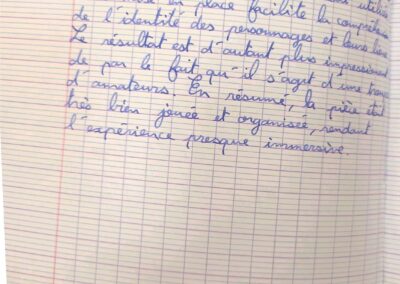 en place facilite la compréhension
de l'identité des personnages et leurs liens
Le résultat est d'autant plus impressionnant
de par le fait qu'il s'agit d'une
d'amateurs. En résumé, la pièce était
très bien jouée et organisée, rendant
l'expérience presque immersive.